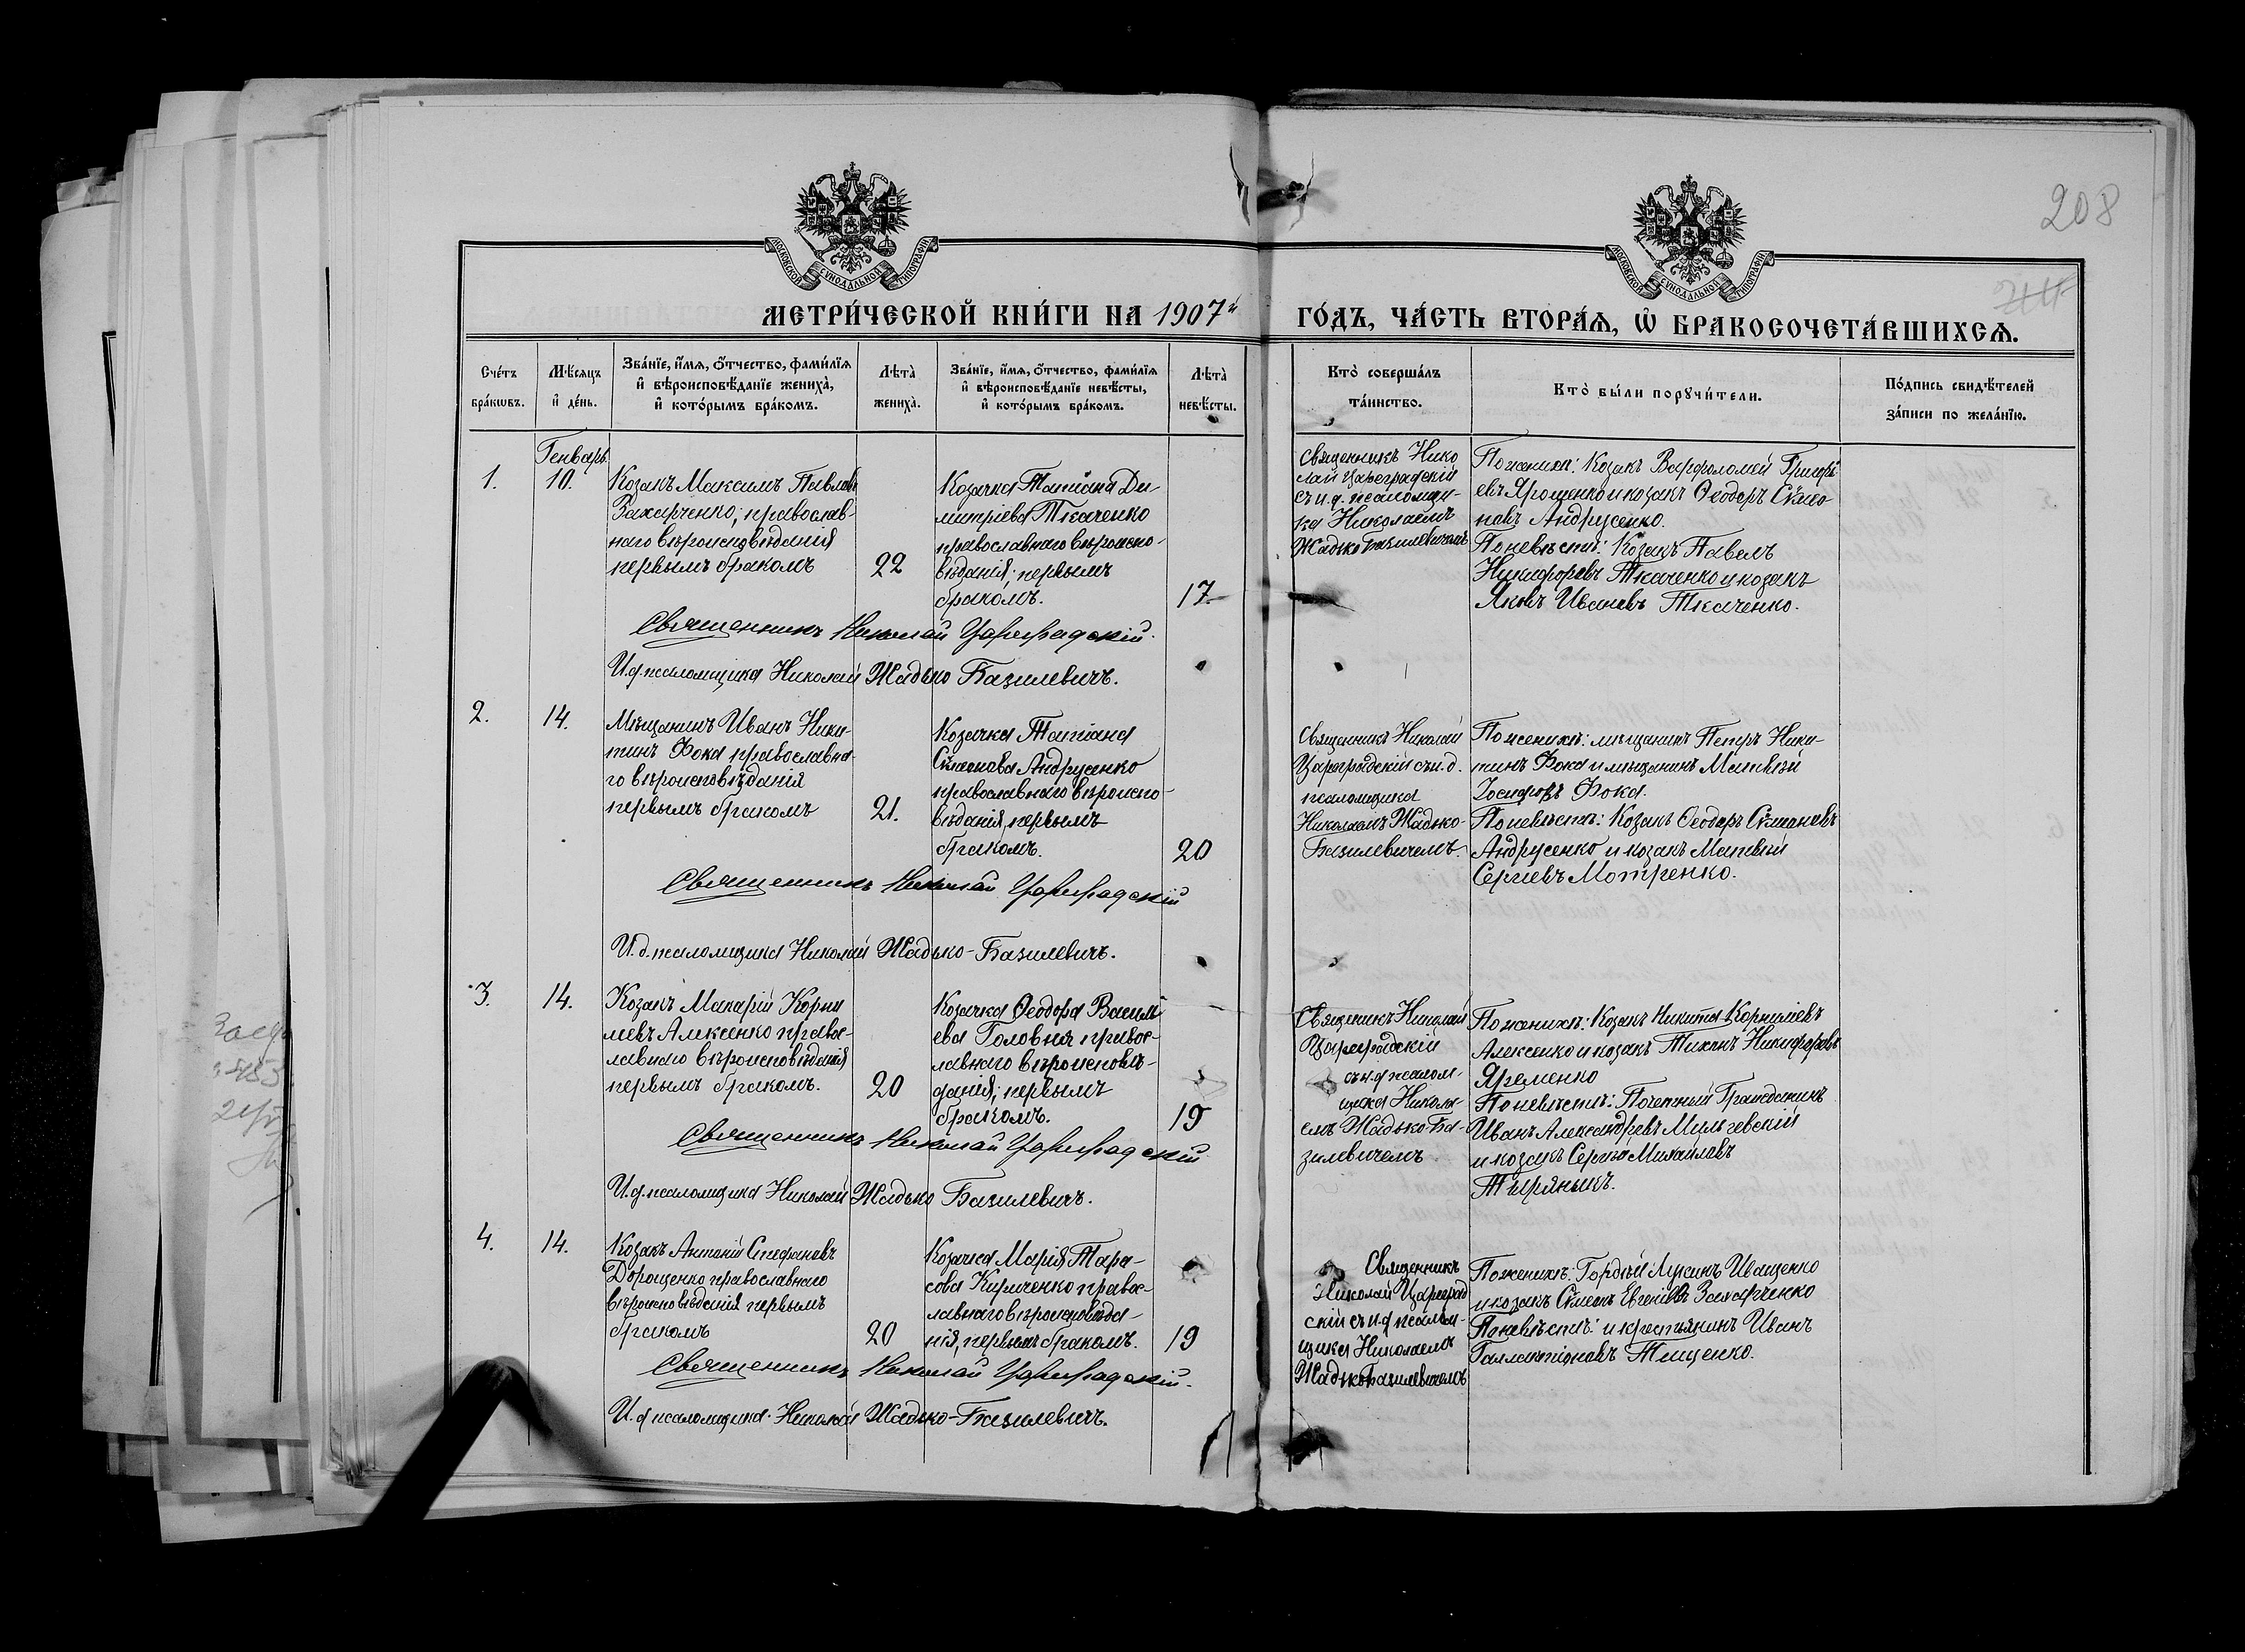 208
МОСКОВСКОЙ СУНОДАЛЬНОЙ ТИПОГРАФІИ
МОСКОВСКОЙ СУНОДАЛЬНОЙ ТИПОГРАФІИ
МЕТРИ́ЧЕСКОЙ КНИ́ГИ НА 1907й ГО́ДЪ, ЧА́СТЬ ВТОРА́Ѧ, Ѡ БРАКОСОЧЕТА́ВШИХСѦ.
Сче́тъ
бра́кωвъ.
Мѣ́сяцъ
и҆ де́нь.
Зва́нїе, и҆́мѧ, ѻ҆́тчество, фами́лїѧ
и҆ вѣроисповѣ́данїе жениха̀,
и҆ кото́рымъ бра́комъ.
Лѣта̀
жениха̀.
Зва́нїе, и҆́мѧ, ѻ҆́тчество, фами́лїѧ
и҆ вѣроисповѣ́данїе невѣ́сты,
и҆ кото́рымъ бра́комъ.
Лѣта̀
невѣ́сты.
Кто̀ соверша́лъ
та́инство.
Кто̀ бы́ли порꙋчи́тели.
По́дпись свидѣ́телей
за́писи по жела́нїю.
Генварь.
1.
10.
Козакъ Максимъ Павловъ
Захарченко; православ-
наго вѣроисповѣданія
первымъ бракомъ
22
Козачка Татіана Ди-
митріева Ткаченко
православнаго вѣроиспо-
вѣданія; первымъ
бракомъ.
17.
Священникъ Нико
лай Цареградскій
съ и.д. псаломщи-
ка Николаемъ
Жадько Базилевичемъ
По женихѣ: Козакъ Варфоломей Григорі
евъ Ярошенко и козакъ Ѳеодоръ Сѵмео
новъ Андрусенко.
По невѣстѣ: Козакъ Павелъ
Никифоровъ Ткаченко и козакъ
Яковъ Ивановъ Ткаченко.
Священникъ Николай Цареградскій.
И.д. псаломщика Николай Жадько Базилевичъ.
2.
14.
Мѣщанинъ Иванъ Ники-
тинъ Фока православна-
го вѣроисповѣданія
первымъ бракомъ
21.
Козачка Татіана
Сѵмеонова Андрусенко
православнаго вѣроиспо-
вѣданія, первымъ
бракомъ.
20
Священникъ Николай
Цареградскій съ и.д.
псаломщика
Николаемъ Жадько-
Базилевичемъ.
По женихѣ: мѣщанинъ Петръ Ники-
тинъ Фока и мѣщанинъ Матвѣй
Іосифовъ Фока.
По невѣстѣ: Козакъ Ѳеодоръ Сѵмеоновъ
Андрусенко и козакъ Матвѣй
Сергіевъ Мотренко.
Священникъ Николай Цареградскій
И.д. псаломщика Николай Жадько-Базилевичъ.
3.
14.
Козакъ Макарій Корни
ліевъ Алексенко правос-
лавнаго вѣроисповѣданія
первымъ бракомъ.
20
Козачка Ѳеодора Василь
ева Головня правос-
лавнаго вѣроисповѣ-
данія; первымъ
бракомъ.
19
Священикъ Николай
Цареградскій
съ и.д псалом-
щика Никола-
емъ Жадько-Ба-
зилевичемъ
По женихѣ: Козакъ Никита Корниліевъ
Алексенко и козакъ Тихонъ Никифоровъ
Яременко
По невѣстѣ: Почетный Гражданинъ
Иванъ Александровъ Мильчевскій
и козакъ Сергій Михайловъ
Священникъ Николай Цареградскій
И.д. псаломщика Николай Жадько Базилевичъ.
4.
14.
Козакъ Антоній Стефановъ
Дорощенко православнаго
вѣроисповѣданія первымъ
бракомъ
20
Козачка Марія Тара-
сова Кириченко правос-
лавнаго вѣроисповѣда-
нія, первымъ бракомъ.
19
Священникъ
Николай Цареград
скій съ и.д псалом-
щика Николаемъ
Жадько Базилевичемъ
По женихѣ: Гордѣй Лукинъ Иващенко
и козакъ Сѵмеонъ Евгеніевъ Захарченко
По невѣстѣ: и крестьянинъ Иванъ
Галактіоновъ Тищенко.
Священникъ Николай Цареградскій.
И.д псаломщика Николай Жадько-Базилевичъ.